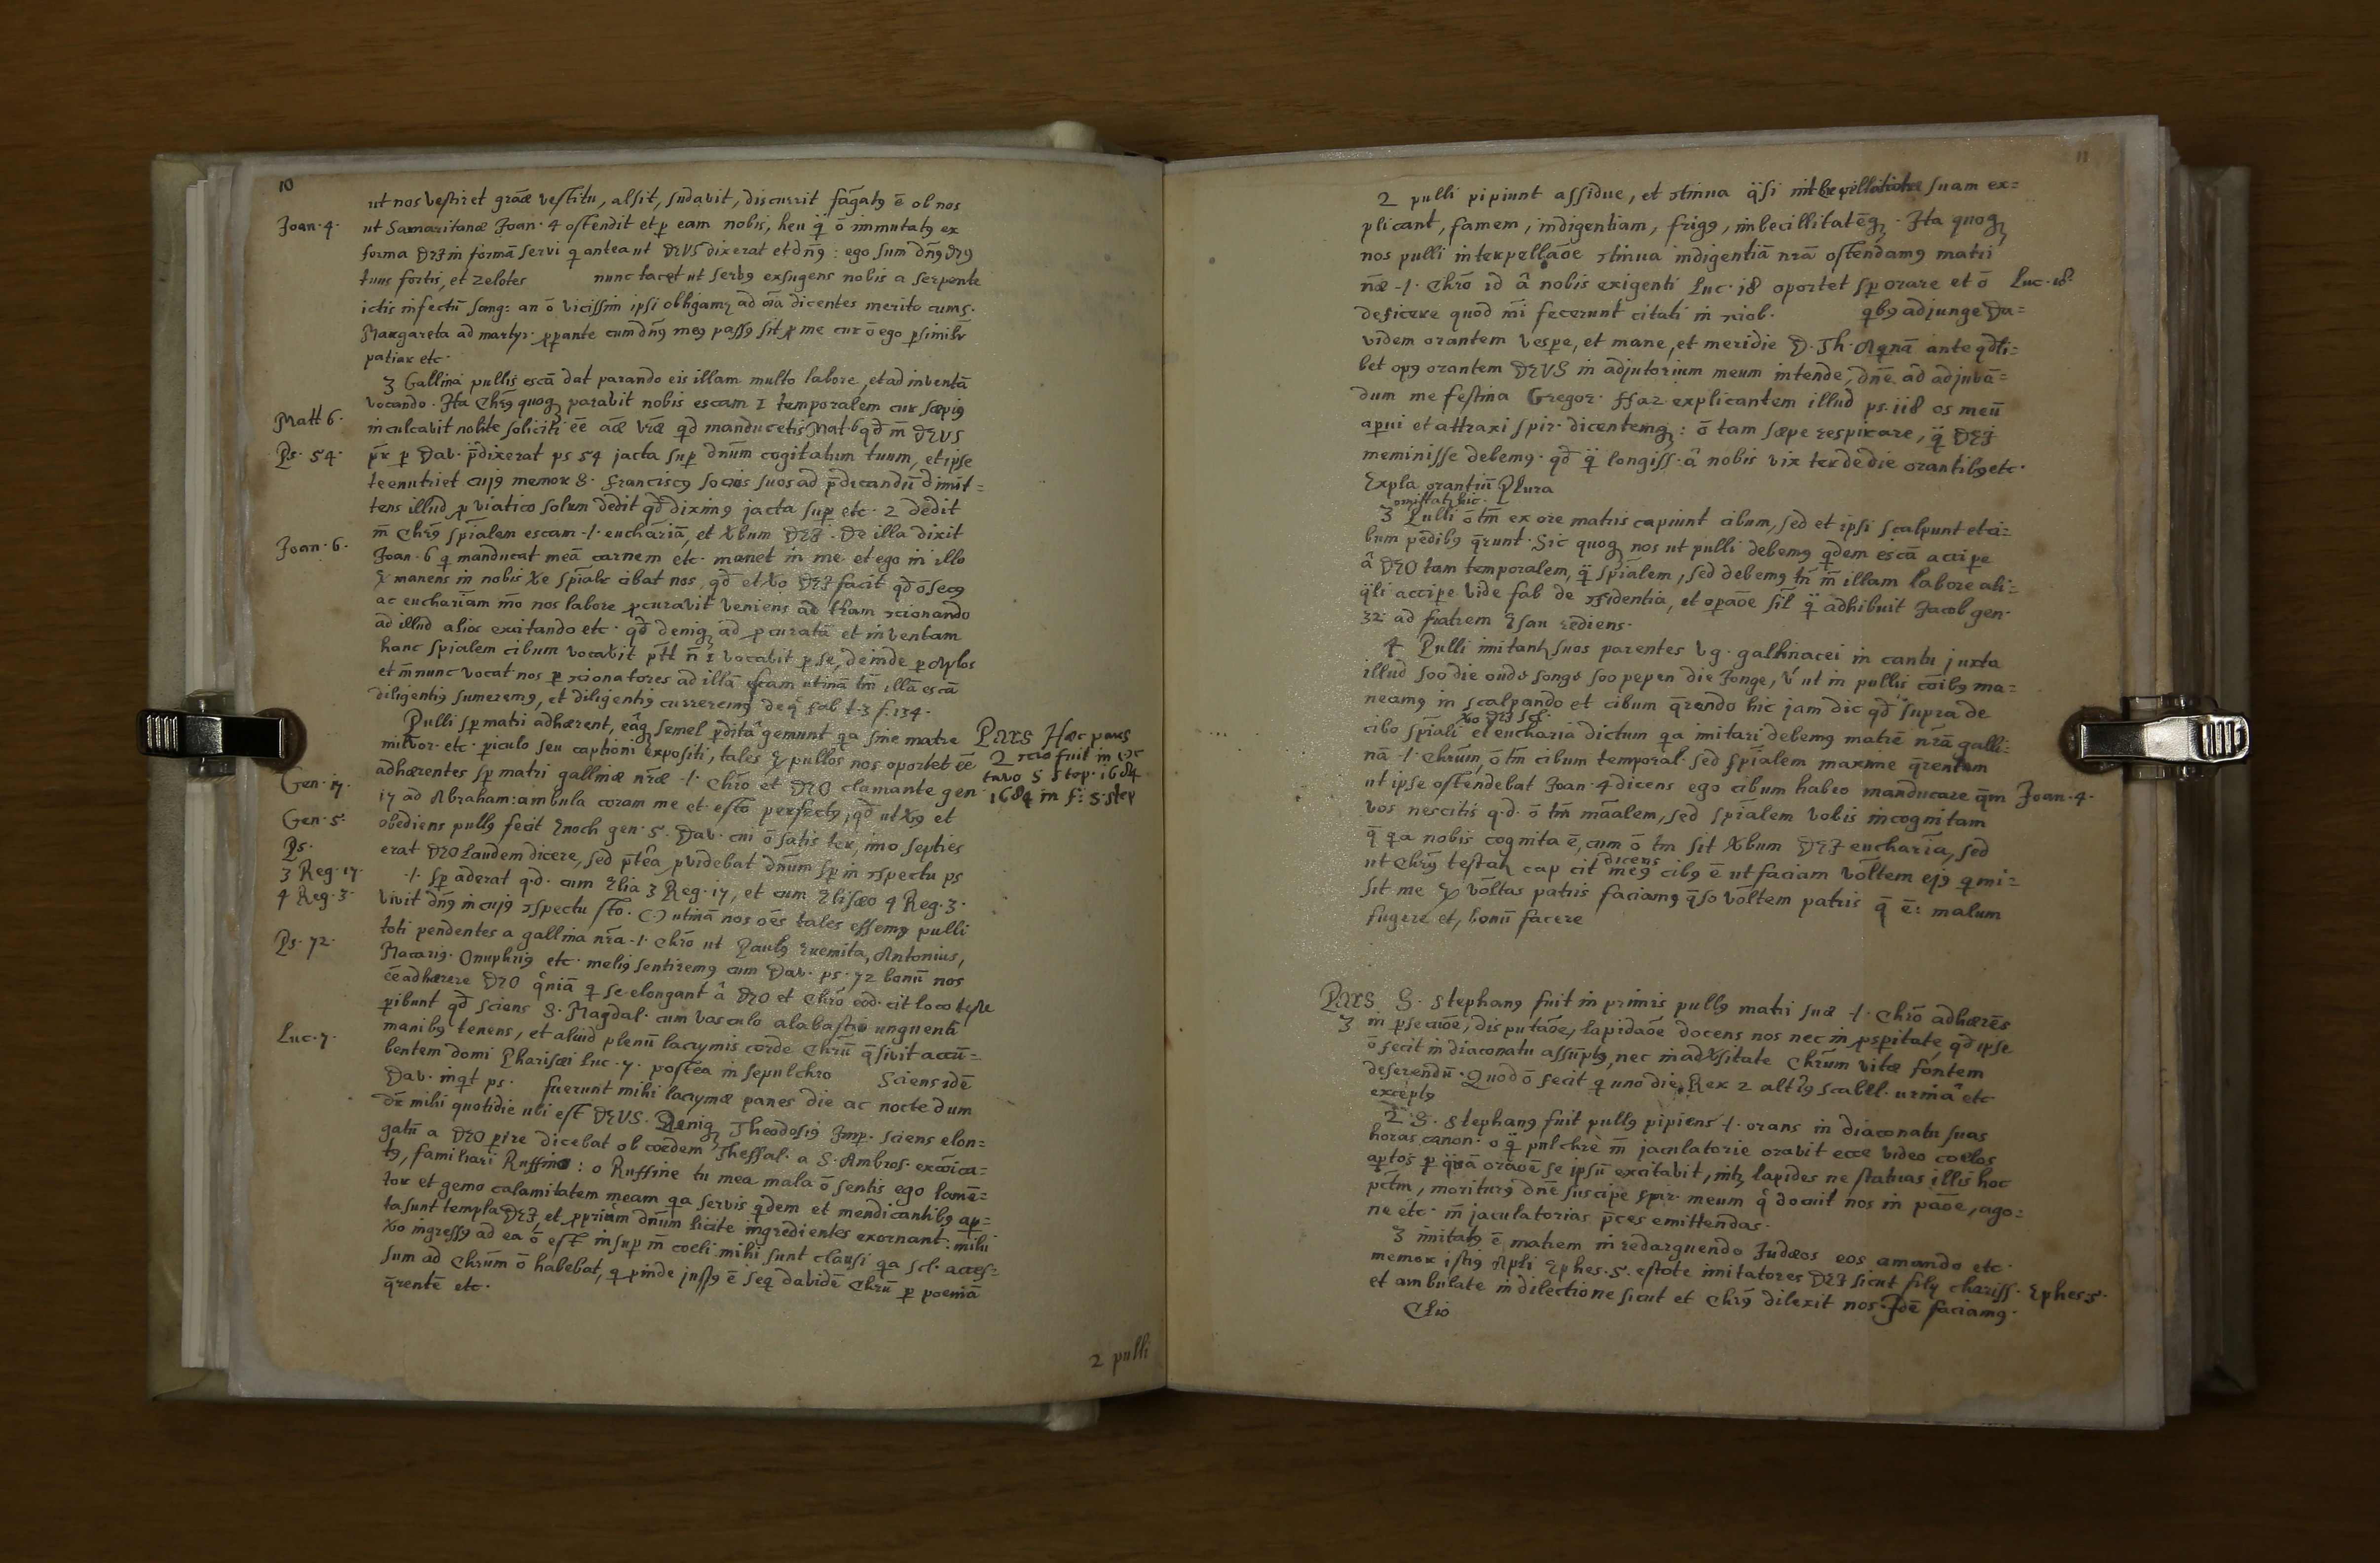 10
ut nos vestiret grãæ vestitu, alsit, sudavit, discurrit fãgatꝰ ē ob nos
Joan·4·
ut Samaritanæ Joan·4 ostendit et p eam nobis, heu q̄ ō immutatꝰ ex
forma DEI in formā servi q antea ut DEUS dixerat et dn̄s: ego sum dn̄s Dꝰ
tuus fortis, et zelotes nunc tacet ut serbꝰ exsugens nobis a serpente
ictis infectū sang: an ō vicissim ipsi obligamꝰ ad dicentes merito cum S·
Margareta ad martyr· ꝓpante cum dn̄s meꝰ passꝰ sit ꝓ me cur ō ego psimilr
patiar etc·
3 Gallina pullis escā dat parando eis illam multo labore, et ad inventā
vocando· Ita Chrꝰ quoqꝫ paravit nobis escam I temporalem cur sæpiꝰ
Matt 6·
inculcavit nolite soliciti ēē aæ vræ qd manducetis Mat·6 qd m̄ DEUS
Ps· 54·
pr p Dav· p̄dixerat ps 54 jacta sup dnūm cogitatum tuum, et ipse
te enutriet cujꝰ memor S· Franciscꝰ socios suos ad p̄dicandū dimit=
tens illud ꝓ viatico solum dedit qd diximꝰ jacta sup etc· 2 dedit
m̄ Chrūs spīalem escam ·/· eucharīā, et Xbum DEI· De illa dixit
Joan·6·
Joan·6 q manducat meā carnem etc· manet in me et ego in illo
manens in nobis Xe spīalr cibat nos, qd et Xo DEI facit qd ō secꝰ
ac euchariām mō nos labore ꝓcuravit veniens ad trām ɔcionando
ad illud alios excitando etc· qd deniqꝫ ad ꝓcuratā et inventam
hanc spīalem cibum vocavit I vocabit p se, deinde p Aplos
et m̄ nunc vocat nos p ɔcionatores ad illā escam utinā tm̄ illā escā
diligentiꝰ sumeremꝰ, et diligentiꝰ curreremꝰ de q fab t·3 f·134·
Pulli sp matri adhærent, eāqꝫ semel pditā gemunt qa sine matre
Pars 2 Hæc pars
milvor· etc· piculo seu captioni expositi, tales pullos nos oportet ēē
ɔcio fuit in oc
adhærentes sp matri gallinæ nr̄æ ·/· Chrō et DEO clamante gen·
tavo S Step· 1684
Gen·17·
17 ad Abraham: ambula coram me et esto perfectꝰ, qd ut Xꝰ et
1684 in f: S·Step
Gen·5·
obediens pullꝰ fecit Enoch gen·5· Dav· cui ō satis ter, imo septies
Ps·
erat DEO laudem dicere, sed p̄tēa ꝓvidebat dnūm sp in ɔspectu ps
3 Reg·17·
·/· sp aderat q·d· cum Elia 3 Reg·17, et cum Elisæo 4 Reg·3·
4 Reg·3·
vivit dn̄s in cujꝰ ɔspectu sto· (·) utinā nos oēs tales essemꝰ pulli
toti pendentes a gallina nrā ·/· Chrō ut Paulꝰ Eremita, Antonius,
Ps·72·
Macariꝰ· Onuphriꝰ etc· meliꝰ sentiremꝰ cum Dav· ps·72 bonū nos
ēē adhærere DEO qniā q se elongant â DEO et Chrō eod· cit loco teste
pibunt qd sciens S· Magdal· cum vasculo alabastri unguenti
Luc·7·
manibꝰ tenens, et aliud plenū lacrymis corde Chrū q̄sivit accū=
bentem domi Pharisæi Luc·7· postea in sepulchro Sciens idē
Dav· inqt ps· fuerunt mihi lacrymæ panes die ac nocte dum
dr mihi quotidie ubi est DEUS· Deniqꝫ Theodosiꝰ Imp· sciens elon=
gatū a DEO pire dicebat ob cœdem Thessal· a S· Ambros· excōica=
tꝰ, familiari Ruffino: o Ruffine tu mea mala ō sentis ego lamē=
tor et gemo calamitatem meam qa servis qdem et mendicantibꝰ ap=
ta sunt templa DEI, et ꝓprium dnūm licite ingredientes exornant: mihi
Xo ingressꝰ ad ea ō est insup m̄ cœli mihi sunt clausi qa scl· acces=
sum ad Chrūm ō habebat, q ꝓinde jussꝰ ē seq davidē Chrū p poeniā
q̄rentē etc·
2 pulli
11
2 pulli pipiunt assidue, et ɔtinua q̈si suam ex=
plicant, famem, indigentiam, frigꝰ, imbecillitatēqꝫ· Ita quoqꝫ
nos pulli interpellaōe ɔtinua indigentiā nrā ostendamꝰ matri
nr̄æ ·/· Chrō id â nobis exigenti Luc·18 oportet sp orare et ō
Luc·18·
deficere quod m̄ fecerunt citati in ɔciob· qbꝰ adjunge Da=
videm orantem vespe, et mane, et meridie D· Th· Aqnā ante qdli=
bet opꝰ orantem DEUS in adjutorium meum intende, dnē ad adjuvā=
dum me festina Gregor· explicantem illud ps·118 os meū
aperui et attraxi spir· dicentemqꝫ: ō tam sæpe respirare, q̈ DEI
meminisse debemꝰ· qd q̈ longiss· â nobis vix ter de die orantibꝰ etc·
Expla orantiū Plura
omittatꝫ hic·
3 Pulli ō tm̄ ex ore matris capiunt cibum, sed et ipsi scalpunt et ci=
bum pēdibꝰ q̄runt· Sic quoqꝫ nos ut pulli debemꝰ qdem escā accipe
â DEO tam temporalem, q̈ spīalem, sed debemꝰ tn̄ m̄ illam labore ali=
q̈li accipe vide fab de ɔfidentia, et opaōe sīl q̈ adhibuit Jacob gen·
32· ad fratrem Esau rediens·
4 Pulli imitantꝫ suos parentes vg· gallinacei in cantu juxta
illud soo die oude songe soo pepen die Jonge, ut in pullis cōibꝰ ma=
neamꝰ in scalpando et cibum q̄rendo hic jam dic qd supra de
Xo DEI scl·
cibo spīali et eucharia dictum qa imitari debemꝰ matrē nrā galli=
nā ·/· Chrūm, ō tm̄ cibum temporal· sed spīalem maxime q̄rentem
ut ipse ostendebat Joan·4 dicens ego cibum habeo manducare q̄m
Joan·4·
vos nescitis q·d· ō tm̄ māalem, sed spīalem vobis incognitam
q̄ qa nobis cognita ē, cum ō tm sit Xbum DEI eucharīa, sed
dicens
ut Chrūs testatꝫ cap cit meꝰ cibꝰ ē ut faciam vōltem ejꝰ q mi=
sit me vōltas patris faciamꝰ q̄so vōltem patris q̄ ē: malum
fugere et, bonū facere
Pars 3
S· Stephanꝰ fuit in primis pullꝰ matri suæ ·/· Chrō adhærēs
in psecuōe, disputaōe, lapidaōe docens nos nec in ꝓspitate, qd ipse
ō fecit in diaconatu assūptꝰ, nec in adXsitate Chrūm vitæ fontem
deserendū· Quod ō fecit q uno die Rex 2 altꝰ scabel· urinâ etc
exceptꝰ
2 S· Stephanꝰ fuit pullꝰ pipiens ·/· orans in diaconatu suas
horas canon: o q̈ pulchrè m̄ jaculatorie oravit ecce video cœlos
aptos p q̈uā orāoē se ipsū excitavit, lapides ne statuas illis hoc
pctm, moriturꝰ dnē suscipe spir· meum q docuit nos in paōe, ago=
ne etc· m̄ jaculatorias p̄ces emittendas·
3 imitatꝰ ē matrem in redarguendo Judæos eos amando etc·
memor istiꝰ Apli Ephes·5· estote imitatores DEI sicut filij chariss·
Ephes 5·
et ambulate in dilectione sicut et Chrꝰ dilexit nos· Idē faciamꝰ·
Clio